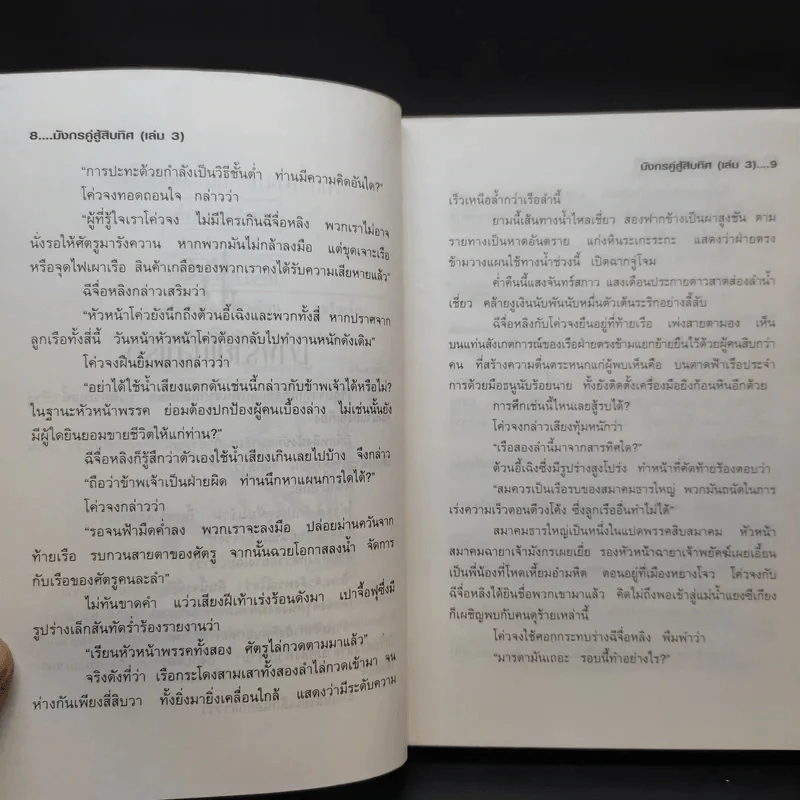 8....มังกรคู่สู้สิบทิศ (เล่ม 3)
"การปะทะด้วยกำลังเป็นวิธีชั้นต่ำ ท่านมีความคิดอันใด?"
โค่วจงทอดถอนใจ กล่าวว่า
"ผู้ที่รู้ใจเราโค่วจง ไม่มีใครเกินฉีจื่อหลิง พวกเราไม่อาจ
นั่งรอให้ศัตรูมารังควาน หากพวกมันไม่กล้าลงมือ แต่ขุดเจาะเรือ
หรือจุดไฟเผาเรือ สินค้าเกลือของพวกเราคงได้รับความเสียหายแล้ว"
ฉีจื่อหลิงกล่าวเสริมว่า
"หัวหน้าโค่วยังนึกถึงต้วนอี้เฉิงและพวกทั้งสี่ หากปราศจาก
ลูกเรือทั้งสี่นี้ วันหน้าหัวหน้าโค่วต้องกลับไปทำงานหนักดังเดิม"
โค่วจงฝืนยิ้มพลางกล่าวว่า
"อย่าได้ใช้น้ำเสียงแดกดันเช่นนี้กล่าวกับข้าพเจ้าได้หรือไม่?
ในฐานะหัวหน้าพรรค ย่อมต้องปกป้องผู้คนเบื้องล่าง ไม่เช่นนั้นยัง
มีผู้ใดยินยอมขายชีวิตให้แก่ท่าน?"
ฉีจื่อหลิงก็รู้สึกว่าตัวเองใช้น้ำเสียงเกินเลยไปบ้าง จึงกล่าว
"ถือว่าข้าพเจ้าเป็นฝ่ายผิด ท่านนึกหาแผนการใดได้?"
โค่วจงกล่าวว่า
"รอจนฟ้ามืดค่ำลง พวกเราจะลงมือ ปล่อยม่านควันจาก
ท้ายเรือ รบกวนสายตาของศัตรู จากนั้นฉวยโอกาสลงน้ำ จัดการ
กับเรือของศัตรูคนละลำ"
ไม่ทันขาดคำ แว่วเสียงฝีเท้าเร่งร้อนดังมา เปาจื้อฟุซึ่งมี
รูปร่างเล็กสันทัดร่ำร้องรายงานว่า
"เรียนหัวหน้าพรรคทั้งสอง ศัตรูไล่กวดตามมาแล้ว"
จริงดังที่ว่า เรือกระโดงสามเสาทั้งสองลำไล่กวดเข้ามา จน
ห่างกันเพียงสี่สิบวา ทั้งยิ่งมายิ่งเคลื่อนใกล้ แสดงว่ามีระดับความ
มังกรคู่สู้สิบทิศ (เล่ม 3)....9
เร็วเหนือล้ำกว่าเรือลำนี้
ยามนี้เส้นทางน้ำไหลเชี่ยว สองฟากข้างเป็นผาสูงชัน ตาม
รายทางเป็นหาดอันตราย แก่งหินระเกะระกะ แสดงว่าฝ่ายตรง
ข้ามวางแผนใช้ทางน้ำช่วงนี้ เปิดฉากจู่โจม
ค่ำคืนนี้แสงจันทร์สกาว แสงเดือนประกายดาวสาดส่องลำน้ำ
เชี่ยว คล้ายงูเงินนับพันนับหมื่นตัวเต้นระริกอย่างลี้ลับ
ฉีจื่อหลิงกับโค่วจงยืนอยู่ที่ท้ายเรือ เพ่งสายตามอง เห็น
บนแท่นสังเกตการณ์ของเรือฝ่ายตรงข้ามแยกย้ายยืนไว้ด้วยผู้คนสิบกว่า
คน ที่สร้างความตื่นตระหนกแก่ผู้พบเห็นคือ บนดาดฟ้าเรือประจำ
การด้วยมือธนูนับร้อยนาย ทั้งยังติดตั้งเครื่องมือยิงก้อนหินอีกด้วย
การศึกเช่นนี้ไหนเลยสู้รบได้?
โค่วจงกล่าวเสียงทุ้มหนักว่า
"เรือสองลำนี้มาจากสารทิศใด?"
ต้วนอี้เฉิงซึ่งมีรูปร่างสูงโปร่ง ทำหน้าที่คัดท้ายร้องตอบว่า
"สมควรเป็นเรือรบของสมาคมธารใหญ่ พวกมันถนัดในการ
เร่งความเร็วตอนตีวงโค้ง ซึ่งลูกเรืออื่นทำไม่ได้"
สมาคมธารใหญ่เป็นหนึ่งในแปดพรรคสิบสมาคม หัวหน้า
สมาคมฉายาเจ้ามังกรเผยเยี่ย รองหัวหน้าฉายาเจ้าพยัคฆ์เผยเอี้ยน
เป็นพี่น้องที่โหดเหี้ยมอำมหิต ตอนอยู่ที่เมืองหยางโจว โค่วจงกับ
ฉีจื่อหลิงได้ยินชื่อพวกเขามาแล้ว คิดไม่ถึงพอเข้าสู่แม่น้ำแยงซีเกียง
ก็เผชิญพบกับคนดุร้ายเหล่านี้
โค่วจงใช้ศอกกระทบร่างฉีจื่อหลิง พึมพำว่า
"มารดามันเถอะ รอบนี้ทำอย่างไร?"